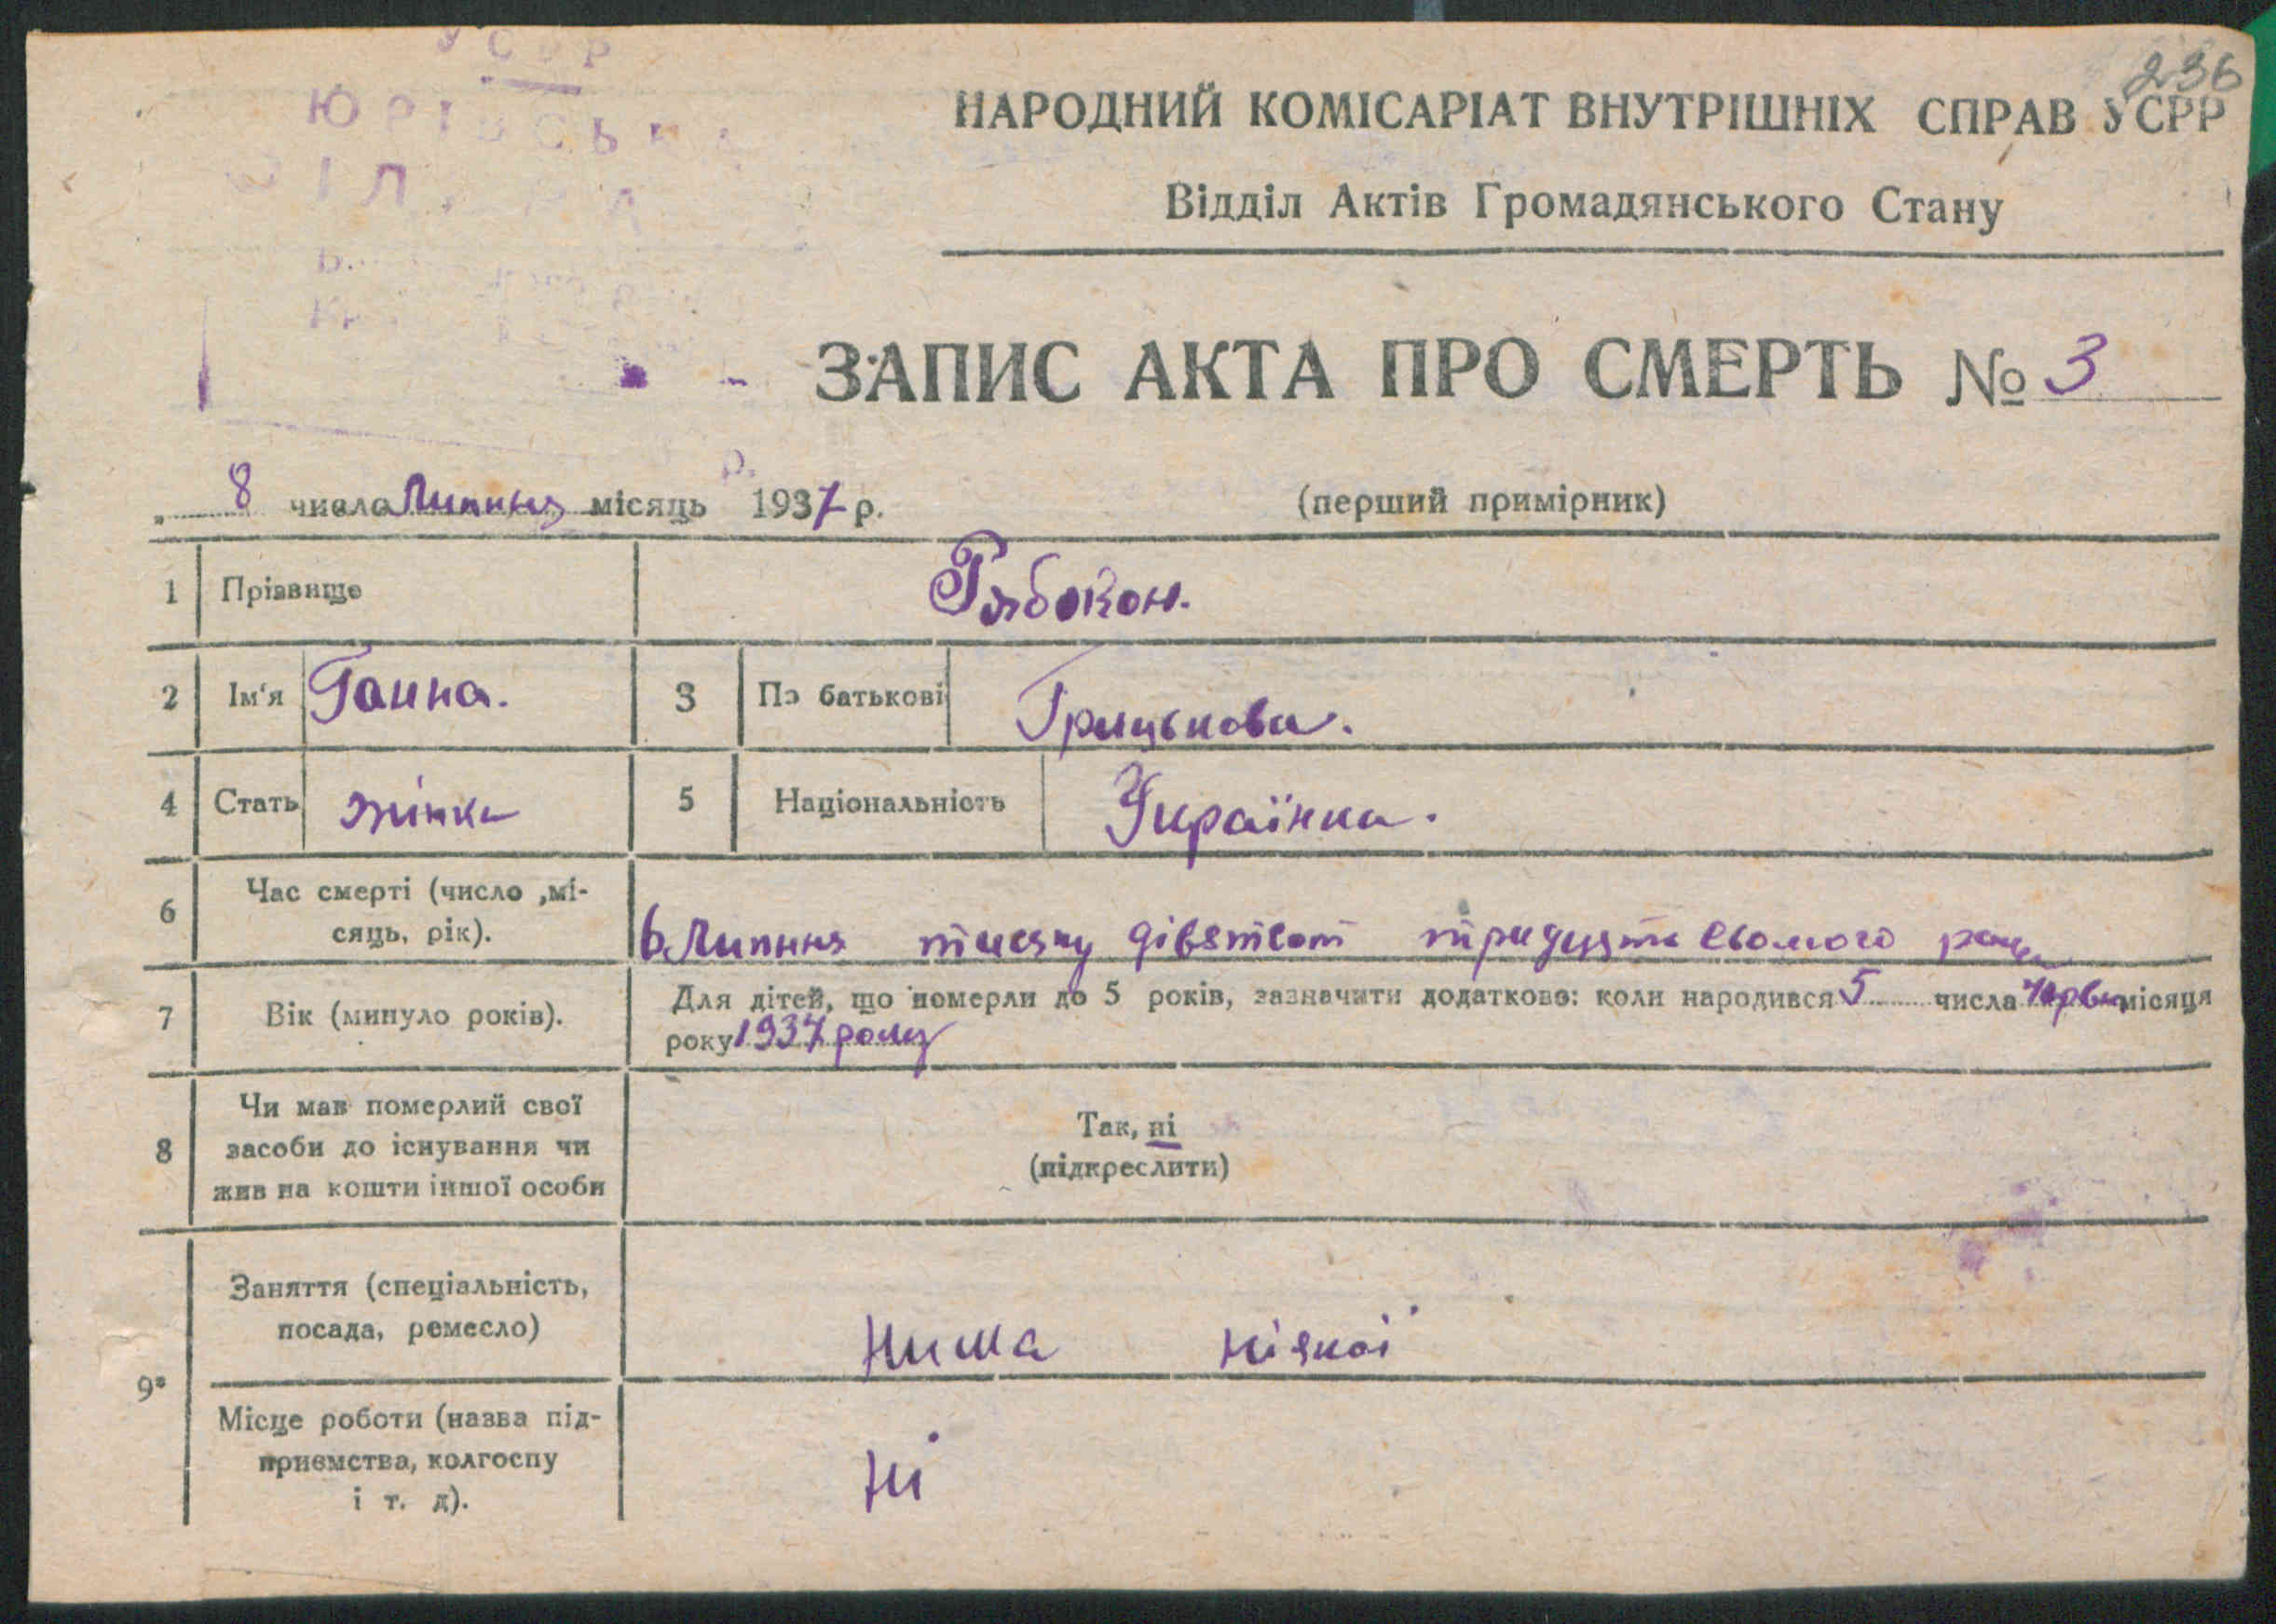 УСРР
ЮРІВСЬКА
236
НАРОДНИЙ КОМІСАРІАТ ВНУТРІШНІХ СПРАВ УСРР
Відділ Актів Громадянського Стану
ЗАПИС АКТА ПРО СМЕРТЬ № 3
„ 8 число Липня місяць 1937 р.
(перший примірник)
1 Прізвище Рябокон.
2 Ім'я Ганна. 3 По батькові Грицькова.
4 Стать жінка 5 Національність Українка.
6 Час смерті (число ,мі-
сяць, рік).
6 Липня тисячу дівятсот тридцять сьомого року
7 Вік (минуло років).
Для дітей, що померли до 5 років, зазначити додатково: коли народився 5 числа Червня місяця
року 1937 року
8 Чи мав померлий свої
засоби до існування чи
жив на кошти іншої особи
Так, ні
(підкреслити)
9
Заняття (спеціальність,
посада, ремесло)
Нима ніякої
Місце роботи (назва під-
приємства, колгоспу
і т. д).
Ні